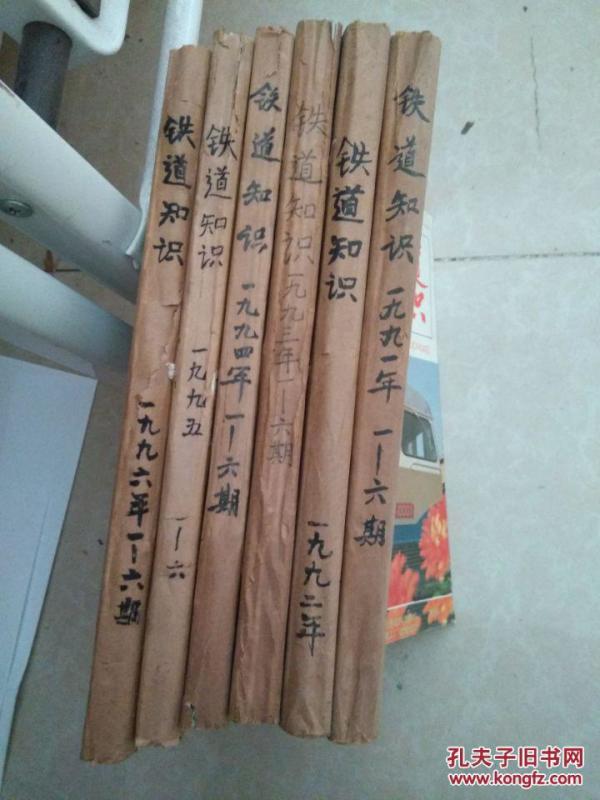 铁道知识 一九九六年 1-六期
铁道知识 一九九五 1-六
铁道知识 一九九四年 1-六期
铁道知识 一九九三年 1-六期
铁道知识 一九九二年
铁道知识 一九九一年 1-六期
识
孔夫子旧书网
www.kongfz.com